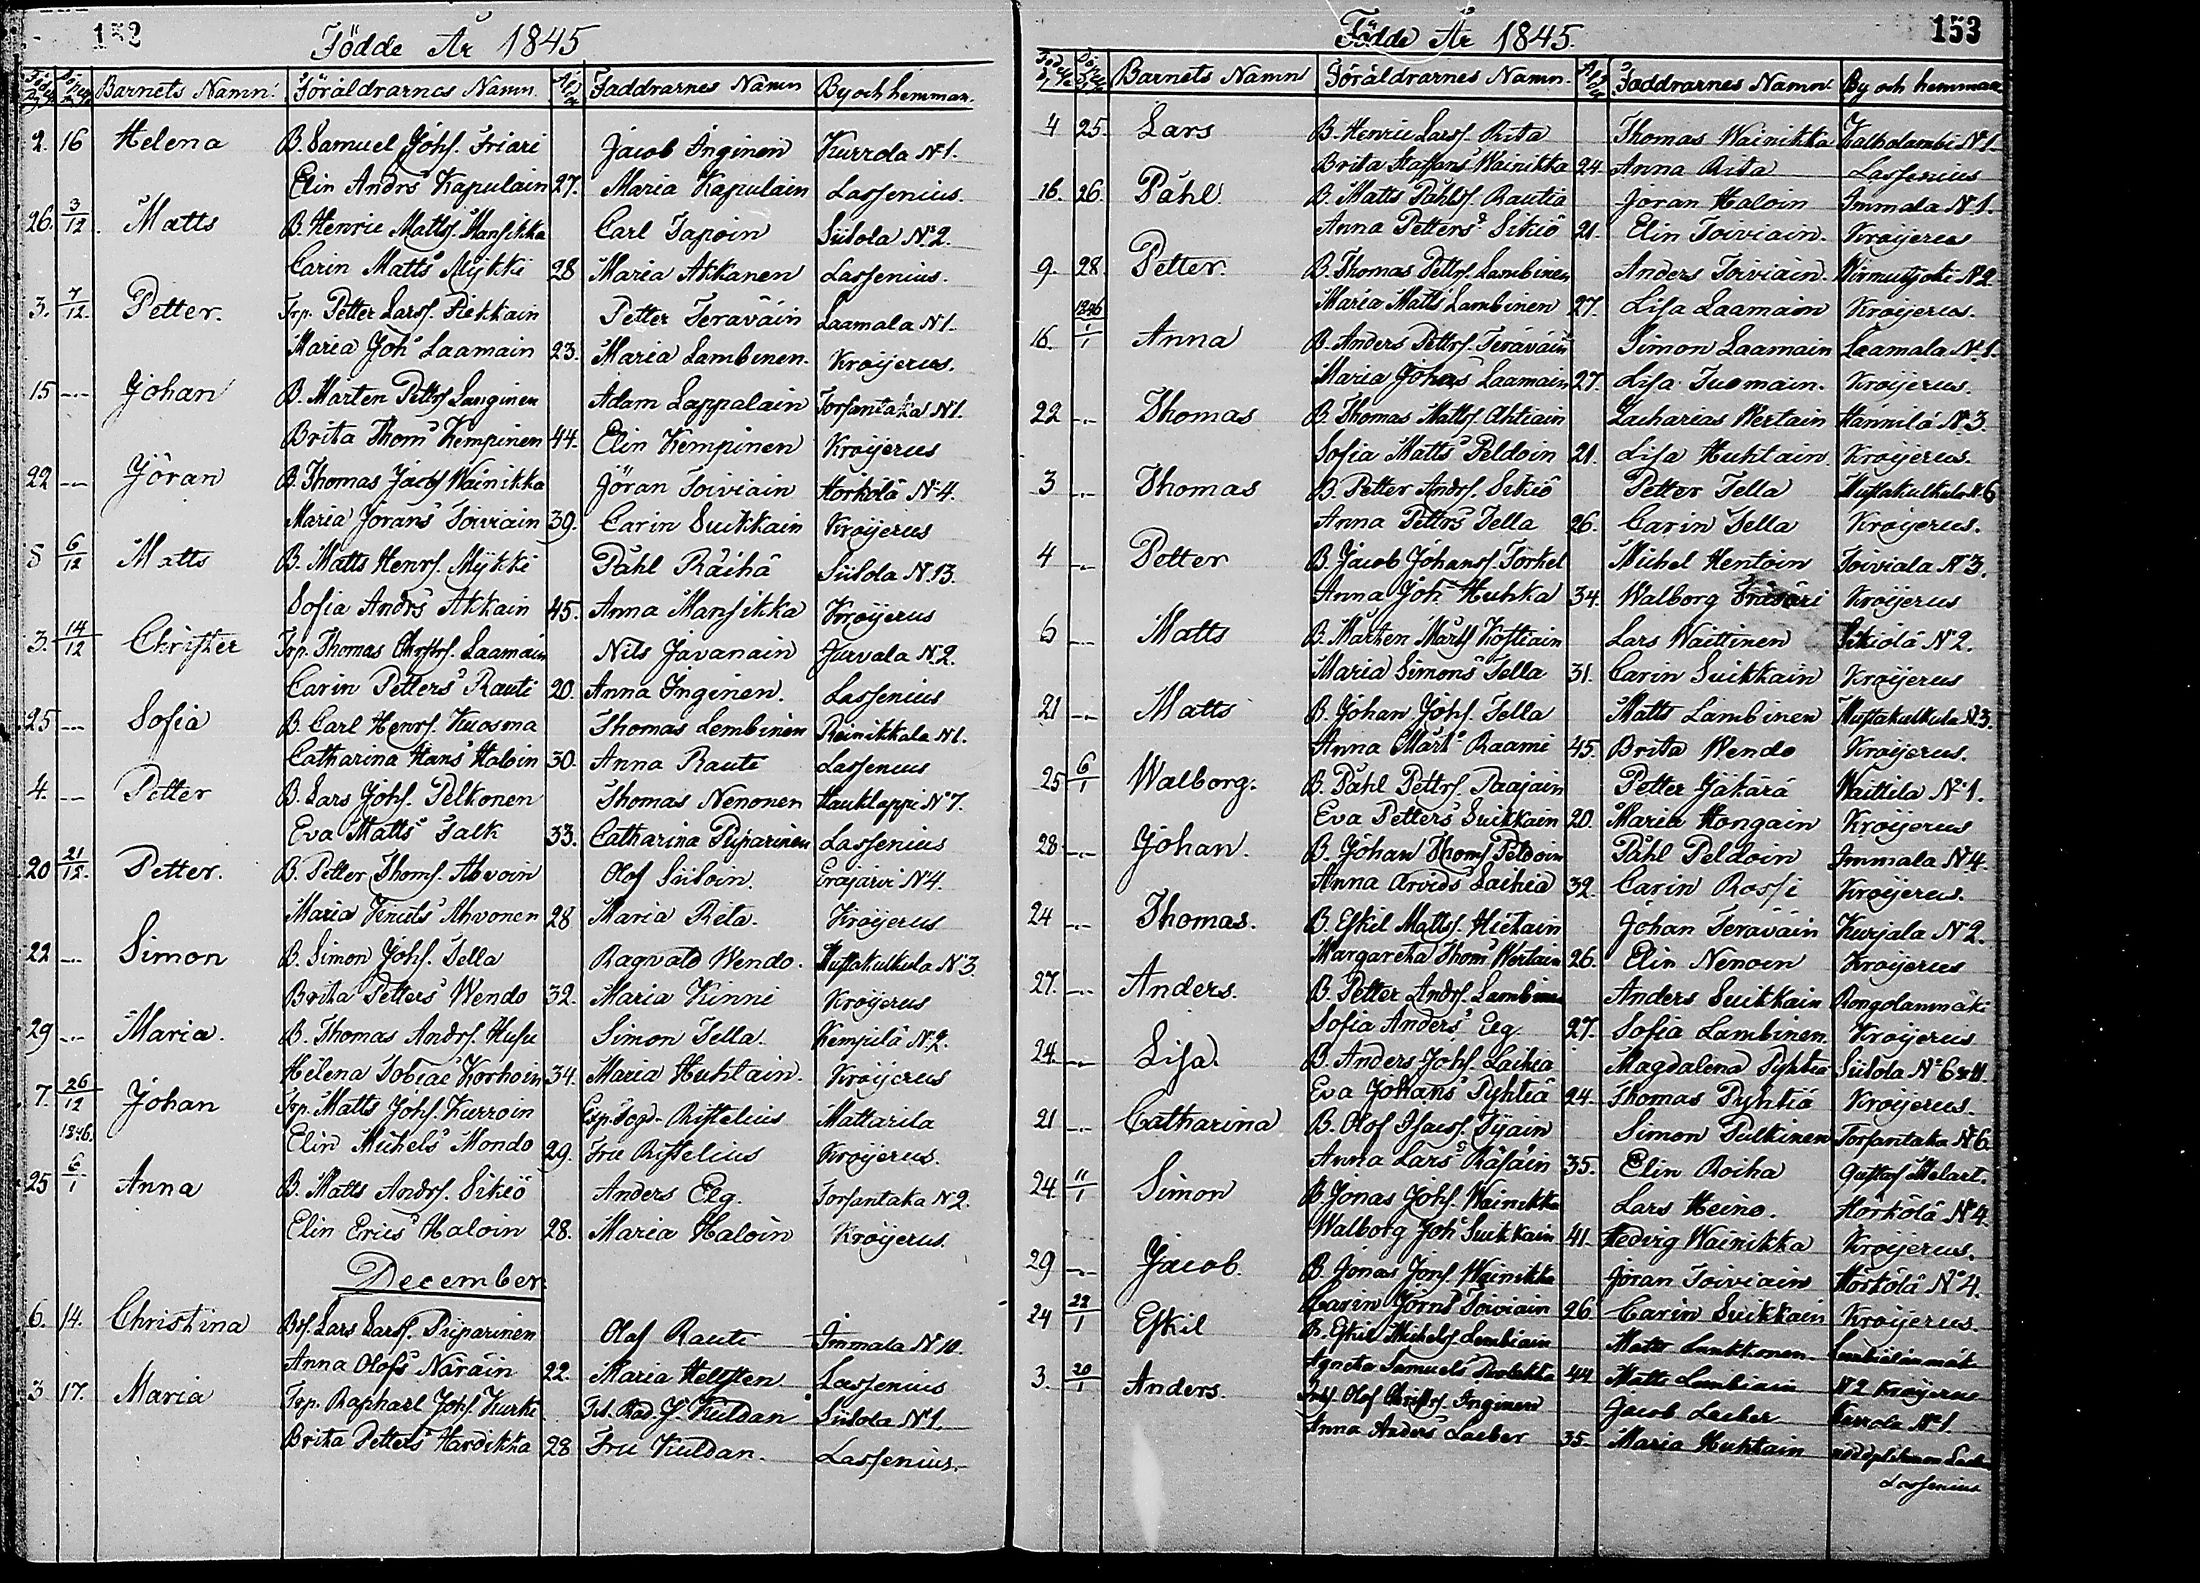 152
Födde År 1845
Barnets Namn. Föräldrarnes Namn. Faddrarnes Namn By och hemman.
2. 16 Helena B. Samuel Johs. Friari Jacob Inginen Kurrola N 1.
Elin Andrs Kapulain 27. Maria Kapulain Lassenius.
26. 3/12. Matts B. Henric Matts. Mansikka Carl Tapoin Siitola N 2.
Carin Matts Mykki 28 Maria Akkanen Lassenius.
3. 7/12. Petter. Trp. Petter Larss. Piekkain Petter Teräväin Laamala N 1.
Maria Joh Laamain 23. Maria Lambinen. Kröijerus.
15 -.- Johan B. Mårten Pettrs Langinen Adam Lappalain Torsantaka N 1.
Brita Thoms Kempinen 44. Elin Kempinen Kröijerus
22 -.- Jöran B. Thomas Jacobs Wainikka Jöran Toiviain Horkölä N 4.
Maria Jörans Toiviain 39. Carin Suikkain Kröijerus
8 6/12 Matts B. Matts Henrs. Mykki Påhl Räihä Siitola N 13.
Sofia Andrs Akkain 45. Anna Mansikka Kröijerus
3. 14/12 Christer Trp. Thomas Chrstrs. Laamain Nils Javanain Jurvala N 2.
Carin Petters Rauti 20. Anna Inginen. Lassenius
25 -.- Sofia B. Carl Henrs. Kuosma Thomas Lembinen Reinikkala N 1.
Catharina Hans Haloin 30. Anna Raute Lassenius
4. -.- Petter B. Lars Johs. Pelkonen Thomas Nenonen Hauklappi N 7.
Eva Matts Falk 33. Catharina Piiparinen Lassenius
20 21/12. Petter. B. Petter Thoms. Ahvoin Olof Siiloin. Eräjärvi N 4.
Maria Knuts Ahvonen 28 Maria Rita. Kröijerus
22 -.- Simon B. Simon Johs. Tella Ragvald Wendo. Mustakulkula N 3
Brita Petters Wendo 32. Maria Kinni Kröijerus
29 -.- Maria. B. Thomas Andrs. Husu Simon Tella. Kempilä N 2.
Helena Tobiae Korhoin 34. Maria Huhtain. Kröijerus
7. 26/12 Johan Trp. Matts Johs. Kurroin Exp. Fogd. Ristelius Mattarila
1846. Elin Michels Mondo 29. Fru Ristelius Kröijerus.
25 6/1 Anna B. Matts Andrs. Sikiö Anders Elg. Torsantaka N 2.
Elin Erics Haloin 28. Maria Haloin Kröijerus.
December
6. 14. Christina Bs. Lars Larss. Piiparinen Olof Raute Immala N 10.
Anna Olofs Naräin 22. Maria Hellsten Lassenius
3 17. Maria Trp. Raphael Johs. Kurki J. Kuldan Siitola N 1.
Brita Petters Hardikka 28 Fru Kuldan. Lassenius.
153
Födde År 1845.
Barnets Namn Föräldrarnes Namn. Faddrarnes Namn. By och hemman
4 25. Lars B. Henric Larss. Rita Thomas Wainikka Kalholambi N 1.
Brita Staffans Wainikka 24. Anna Rita Lassenius
16. 26. Påhl B. Matts Påhls. Rautia Jöran Haloin Immala N 1.
Anna Petters Sikiö 21. Elin Toiviain. Kröijerus
9. 28. Petter. B. Thomas Pettrs. Lambinen Anders Toiviain. Wirmutjoki N 2
1846 Maria Matts Lambinen 27. Lisa Laamain Kröijerus.
16. 1/1 Anna B. Anders Pettrs. Teräväin Simon Laamain Laamala N 1.
Maria Johans Laamain 27. Lisa Tuomain. Kröijerus.
22 -.- Thomas B. Thomas Matts. Ahtiain Zacharias Wertain Hännilä N 3.
Sofia Matts Peldoin 21. Lisa Huhtain. Kröijerus.
3 -.- Thomas B. Petter Andrs. Sikiö Petter Tella Mustakulkula N 6
Anna Pettrs Tella 26. Carin Tella Kröijerus.
4 -.- Petter B. Jacob Johanss. Torkel Michel Hentoin Toiviala N 3.
Anna Joh Huhka 34. Walborg Kröijerus
6 -.- Matts B. Mårten Mårts Kostiain Lars Waittinen Sikiölä N 2.
Maria Simons Tella 31. Carin Suikkain Kröijerus
21 -.- Matts B. Johan Johs. Tella Matts Lambinen Mustakulkula N 3.
Anna Mårts Raami 45. Brita Wendo Kröijerus.
25 6/1 Walborg. B. Påhl Pettrs. Paajain Petter Jäkärä Waittila N 1.
Eva Petters Suikkain 20. Maria Hongain Kröijerus
28 -.- Johan. B. Johan Thoms Peldoin Påhl Peldoin Immala N 4.
Anna Arvids Laihia 32 Carin Rossi Kröijerus.
24 -.- Thomas. B. Eskil Matts. Hietain Johan Teräväin Kurjala N 2.
Margaretha Thoms Wertain 26. Elin Nenoin Kröijerus
27. -.- Anders. B. Petter Andrs. Lambinen Anders Suikkain Rongolanmäki
Sofia Anders Elg. 27. Sofia Lambinen Kröijerus
24 -.- Lisa. B. Anders Johs. Laihia Magdalena Pyhtiä Siitola N 6 o 11.
Eva Johans Pyhtiä 24. Thomas Pyhtiä Kröijerus.
21 -.- Catharina B. Olof Isacs. Tijäin Simon Pulkinen Torsantaka N 6.
Anna Lars Räsäin 35. Elin Roiha Gustaf Melart.
24 11/1 Simon B. Jonas Johs. Wainikka Lars Heino. Horkölä N 4.
Walborg Joh Suikkain 41. Hedvig Wainikka Kröijerus.
29 -.- Jacob. B. Jonas Jons. Wainikka Jöran Toiviain Horkölä N 4.
Carin Jörns Toiviain 26. Carin Suikkain Kröijerus.
24 22/1 Eskil B. Eskil Michels Lembiain Matts Lunkkonen
Agneta Samuels 44 Matts Lembiain N 2 Kröijerus
3. 20/1 Anders. Olof Christrs. Inginen Jacob Laeber Kurrola N 1.
Anna Anders Laeber 35. Maria Huhtain nöddpt Simon
Lassenius